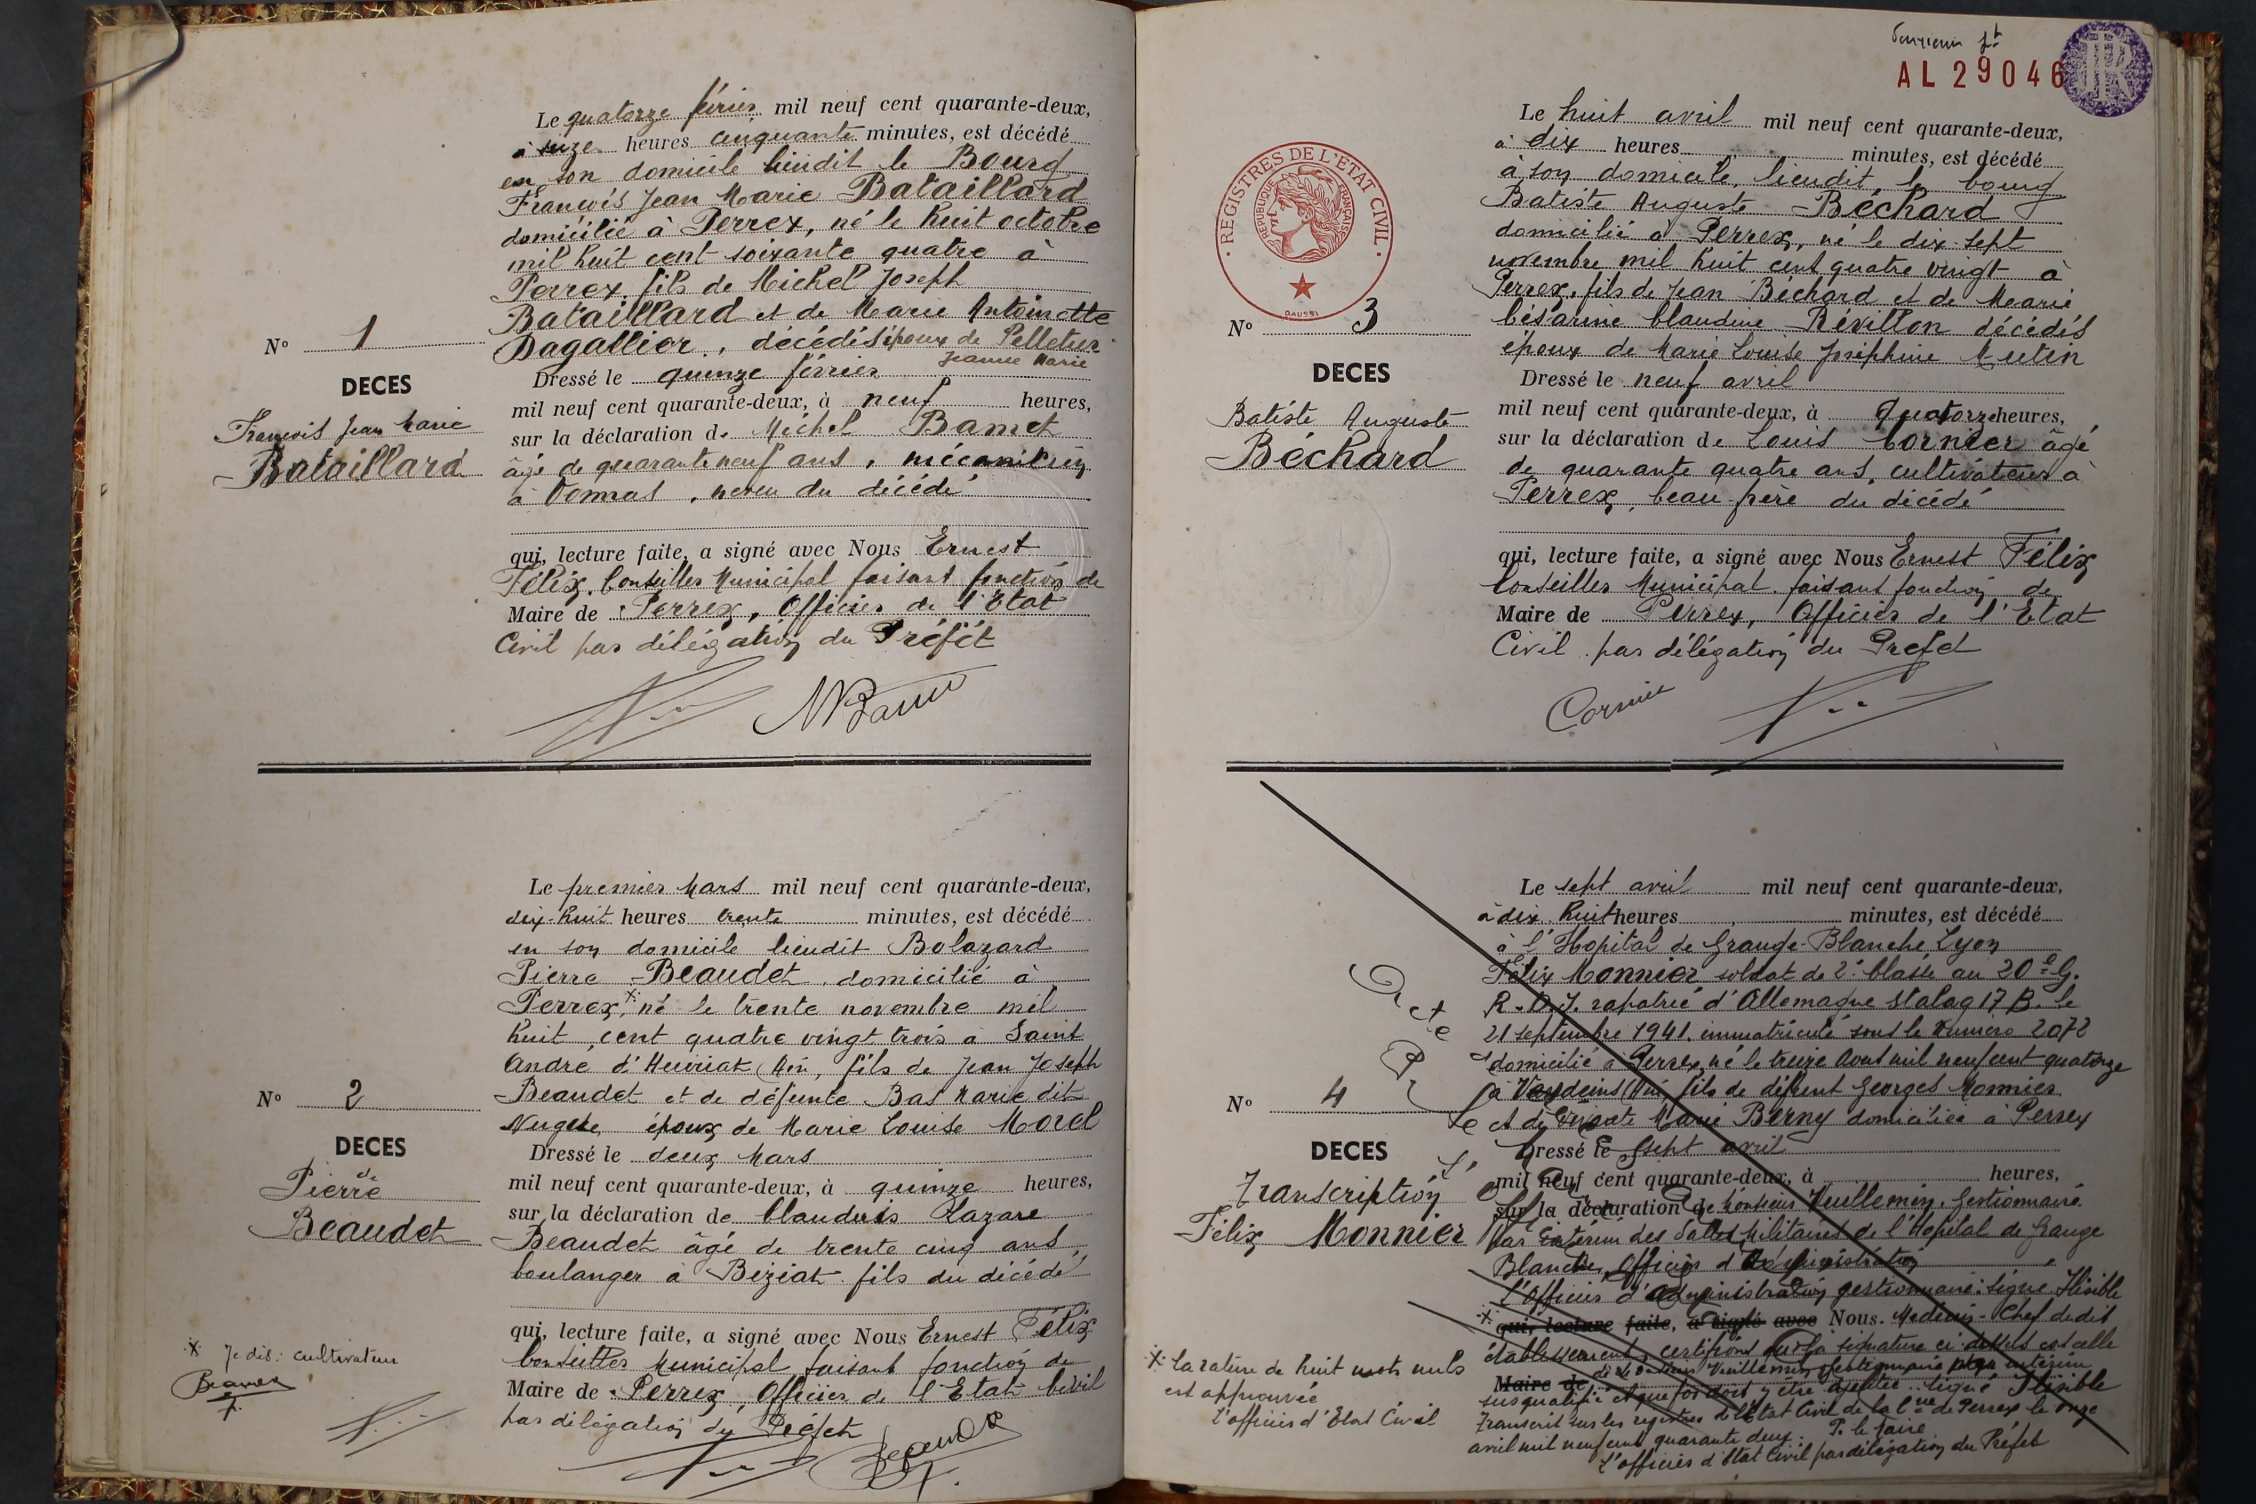 Le quatorze février mil neuf cent quarante-deux,
à heures cinquante minutes, est décédé
en son domicile lieudit le Bourg
François Jean Marie Bataillard
domicilié à Perrex, né le huit octobre
mil huit cent soixante quatre à
Perrex, fils de Michel Joseph
Bataillard et de Marie Antoinette
Dagallier, décédés époux de Pelletier
Jeanne Marie
N° 1
DECES
François Jean Marie
Bataillard
Dressé le quinze février
mil neuf cent quarante-deux, à neuf heures,
sur la déclaration de Michel Bamet
âgé de quarante neuf ans, mécanicien
à Vonnas, neveu du décédé
qui, lecture faite, a signé avec Nous Ernest
Félix, Conseiller Municipal faisant fonction de
Maire de Perrex, Officier de l'Etat
Civil par délégation du Préfet
Le premier Mars mil neuf cent quarante-deux,
dix-huit heures trente minutes, est décédé
en son domicile lieudit Bolazard
Pierre Beaudet domicilié à
Perrex, * né le trente novembre mil
huit cent quatre vingt trois à Saint
André d'Huiriat Ain, fils de Jean Joseph
Beaudet et de défunte Bas Marie dit
époux de Marie Louise Morel
N° 2
DECES
de
Pierre
Beaudet
Dressé le deux Mars
mil neuf cent quarante-deux, à quinze heures,
sur la déclaration de Claudius Lazare
Beaudet âgé de trente cinq ans,
boulanger à Béziat fils du décédé
qui, lecture faite, a signé avec Nous Ernest Félix
Conseiller Municipal faisant fonction de
Maire de Perrex, Officier de l'Etat Civil
par délégation du Préfet
* Je dis : cultivateur
AL 29046
REGISTRES DE L'ETAT CIVIL
REPUBLIQUE FRANÇAISE
DAUSSI
Le huit avril mil neuf cent quarante-deux,
à dix heures minutes, est décédé
à son domicile, lieudit le bourg
Batiste Auguste Béchard
domicilié à Perrex, né le dix sept
novembre mil huit cent quatre vingt à
Perrex, fils de Jean Béchard et de Marie
Césarine Claudine Révillon décédés
époux de Marie Louise Joséphine Mutin
N° 3
DECES
Batiste Auguste
Béchard
Dressé le neuf avril
mil neuf cent quarante-deux, à Quatorze heures,
sur la déclaration de Louis Cornier âgé
de quarante quatre ans, cultivateur à
Perrex, beau-père du décédé
qui, lecture faite, a signé avec Nous Ernest Félix
Conseiller Municipal faisant fonction de
Maire de Perrex, Officier de l'Etat
Civil par délégation du Préfet
Cornier
Le sept avril mil neuf cent quarante-deux,
à dix huit heures minutes, est décédé
à l'Hopital de Grange-Blanche Lyon
Félix Monnier soldat de 2e Classe au 20e G.
rapatrié d'Allemagne stalag 17 B. le
21 septembre 1941. immatriculé sous le numero 2072
domicilié à Perrex, né le treize Aout mil neuf cent quatorze
à Vandeins (Ain) fils de défunt Georges Monnier
et de Marie Berny domiciliée à Perrex
N° 4
DECES
Transcription
Félix Monnier
Acte
Dressé le sept avril
mil neuf cent quarante-deux, à heures,
sur la déclaration de Monsieur Vuillemin, Gestionnaire
par intérim des Salles Militaires de l'Hopital de Grange
Blanche, Officier d'Administration
L'Officier d'administration gestionnaire : signé Illisible
* qui, lecture faite, a signé avec Nous. Medecin-Chef dudit
établissement, certifions que la signature ci dessus est celle
de Monsieur Vuillemin gestionnaire par intérim
Maire de
susqualifié et que foi doit y être ajoutée. signé Illisible
Transcrit sur les registres de l'Etat Civil de la Cne de Perrex le onze
avril mil neuf cent quarante deux. P. le Maire
L'officier d'Etat Civil par délégation du Préfet
* La rature de huit mots nuls
est approuvée
L'officier d'Etat Civil